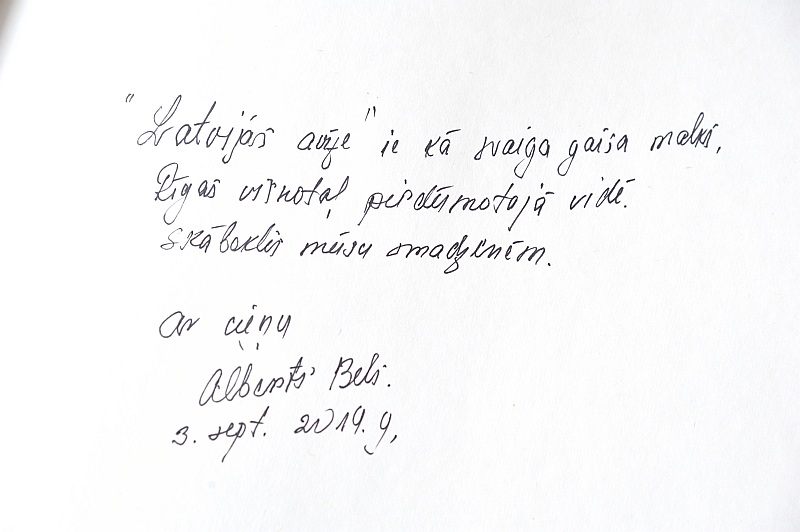 "Latvijas avīze" ir kā svaiga gaisa malks,
Rīgas visnotaļ piesārmotajā vidē.
Skābeklis mūsu smadzenēm.
Ar cieņu
Alberts Bels.
3. sept. 2019. g.